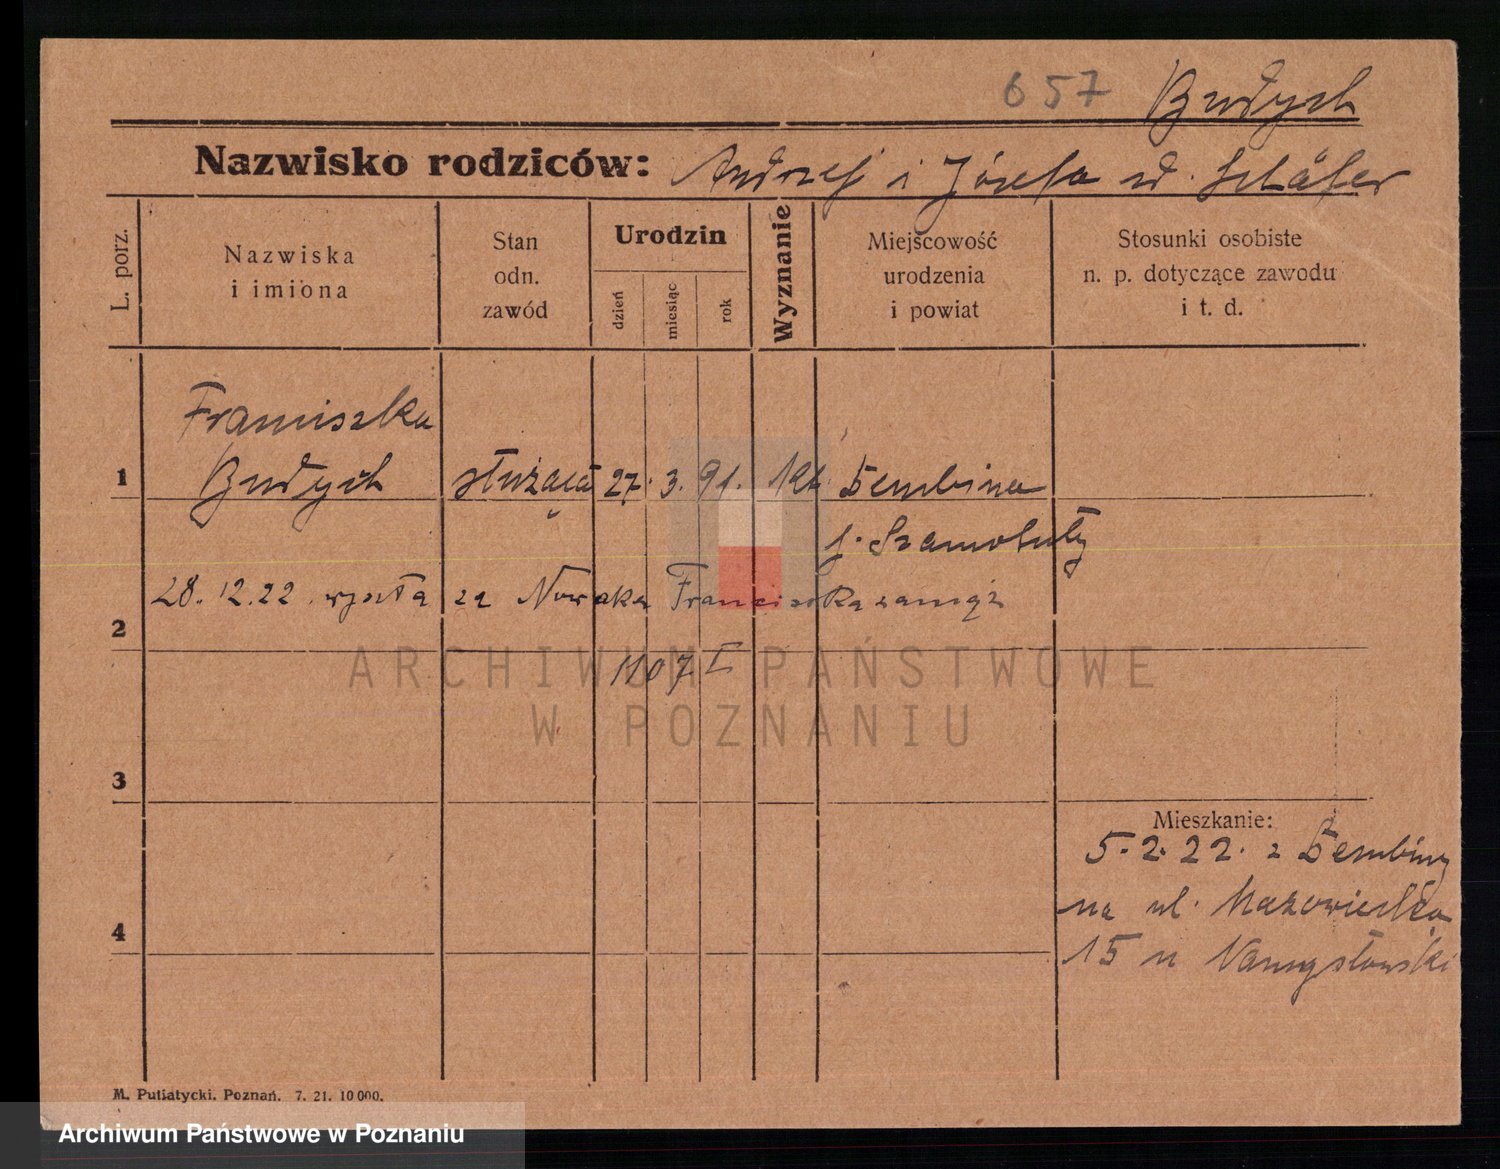 657 Budych
Nazwisko rodziców: Andrzej i Józefa zd. Schäfer
L. porz.
Nazwiska
i imiona
Stan
odn.
zawód
Urodzin
dzień
miesiąc
rok
Wyznanie
Miejscowość
urodzenia
i powiat
Stosunki osobiste
n. p. dotyczące zawodu
i t. d.
Franciszka
1 Budych służąca 27. 3. 91. kat.
p. Szamotuły
28.12.22 wyszła za Nowaka Franciszka zamąż
2
1107 I
ARCHIWUM PAŃSTWOWE
W POZNANIU
3
Mieszkanie:
5.2.22. z
na ul. Mazowiecka
4
15 u Namysłowski
M. Putiatycki. Poznań. 7. 21. 10 000.
Archiwum Państwowe w Poznaniu